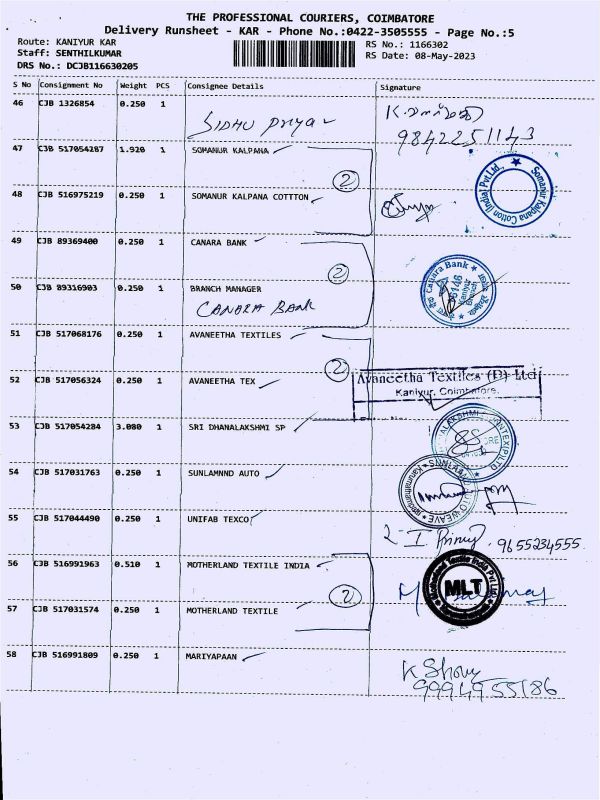 THE PROFESSIONAL COURIERS, COIMBATORE
Delivery Runsheet - KAR - Phone No.:0422-3505555 - Page No.:5
Route: KANIYUR KAR
RS No.: 1166302
Staff: SENTHILKUMAR
RS Date: 08-May-2023
DRS No.: DCJB116630205
S No Consignment No Weight PCS Consignee Details Signature
46 CJB 1326854 0.250 1
SIDHU PriyA
9842251143
47 CJB 517054287 1.920 1 SOMANUR KALPANA
2
Somanur Kalpana Cotton (India) Pvt Ltd.,
48 CJB 516975219 0.250 1 SOMANUR KALPANA COTTTON
49 CJB 89369400 0.250 1 CANARA BANK
2
Canara Bank
Kaniyur
Branch
50 CJB 89316903 0.250 1 BRANCH MANAGER
CANARA BANK
51 CJB 517068176 0.250 1 AVANEETHA TEXTILES
2
Avaneetha Textiles (P) Ltd
Kaniyur, Coimbatore.
52 CJB 517056324 0.250 1 AVANEETHA TEX
53 CJB 517054284 3.080 1 SRI DHANALAKSHMI SP
54 CJB 517031763 0.250 1 SUNLAMNND AUTO
55 CJB 517044490 0.250 1 UNIFAB TEXCO
9655234555
56 CJB 516991963 0.510 1 MOTHERLAND TEXTILE INDIA
2
Motherland Textile India Pvt Ltd
MLT
57 CJB 517031574 0.250 1 MOTHERLAND TEXTILE
58 CJB 516991809 0.250 1 MARIYAPAAN